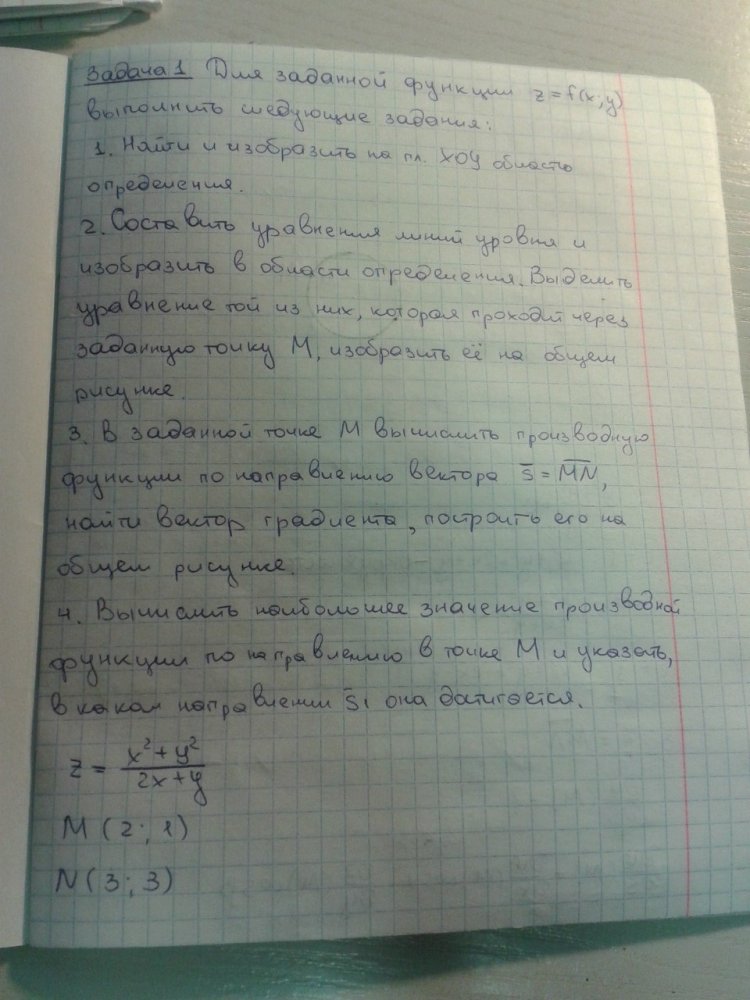 Задача 1 Для заданной функции z = f(x; y)
выполнить следующие задания:
1. Найти и изобразить на пл. XOY область
определения.
2. Составить уравнения линий уровня и
изобразить в области определения. Выделить
уравнение той из них, которая проходит через
заданную точку M, изобразить её на общем
рисунке.
3. В заданной точке M вычислить производную
функции по направлению вектора s̅ = M̅N̅,
найти вектор градиента, построить его на
общем рисунке.
4. Вычислить наибольшее значение производной
функции по направлению в точке M и указать,
в каком направлении s̅₁ она достигается.
z = (x² + y²)/(2x + y)
M (2; 1)
N (3; 3)